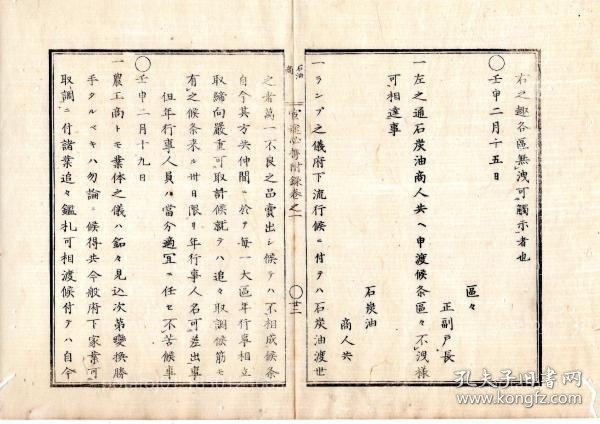 右之趣各區無洩可觸示者也
壬申二月十五日
區々
正副戸長
〇
一左之通石炭油商人共ヘ申渡候条區々不洩様
可相達事
石炭油
商人共
一ランプ之儀府下流行候ニ付テハ石炭油渡世
石油商
官途必携附録巻之一
〇廿二
之者萬一不良之品賣出シ候テハ不相成候条
自今其方共仲間ニ於テ毎一大區年行事相立
取締向嚴重可取計候就テハ追々取調候筋モ
有之候条来ル廿日限リ年行事人名可差出事
但年行事人員ハ當分適宜ニ任セ不苦候事
壬申二月十九日
〇
一農工商トモ業体之儀ハ銘々見込次第變換勝
手タルベキハ勿論ニ候得共今般府下家業可
取調ニ付諸業追々鑑札可相渡候付テハ自今
孔夫子旧书网
www.kongfz.com